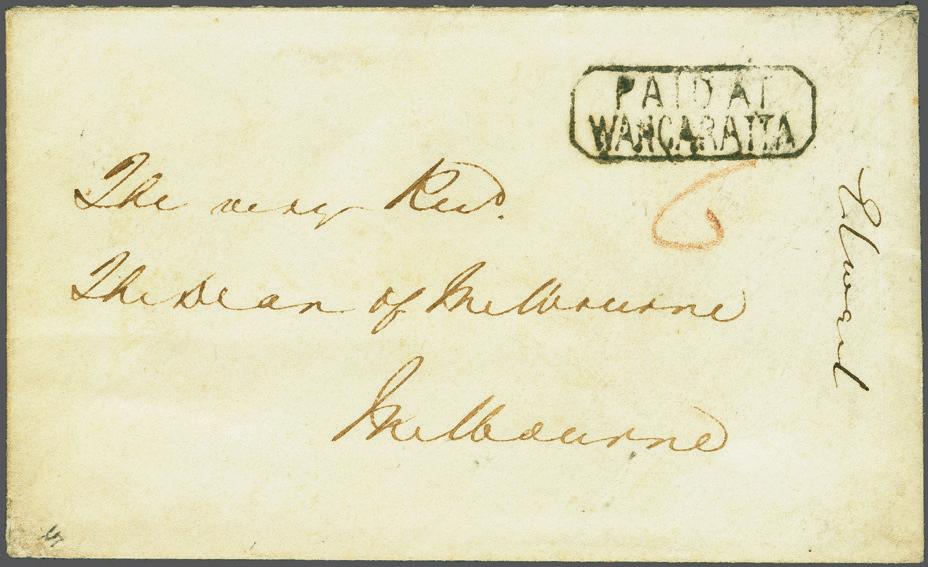 PAID AT
WANGARATTA
6
The very Revd.
The Dean of Melbourne
Melbourne